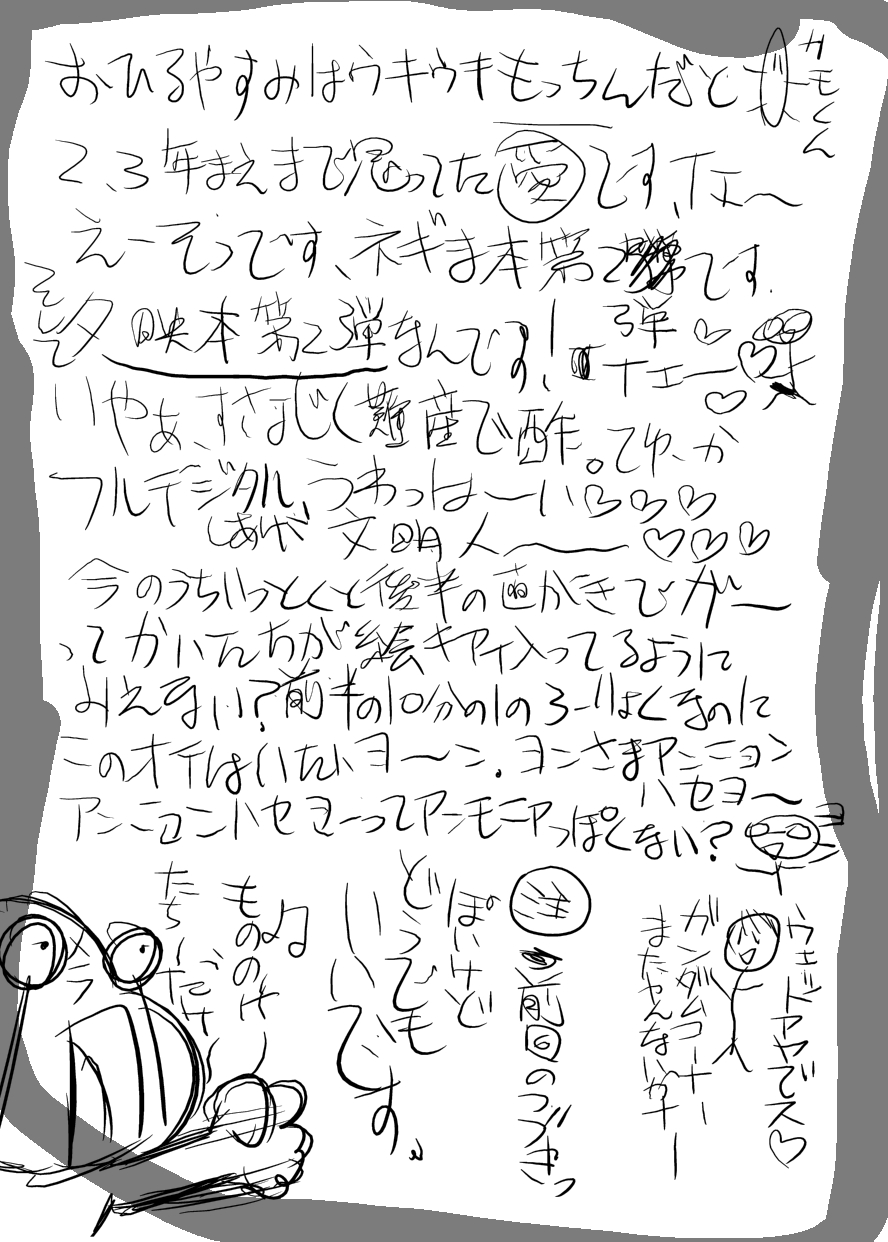 おひるやすみはウキウキもっちんだと
カモくん
2、3年まえまで思ってた愛です、イエ〜
えーそうです、ネギま本第2です.
弾
そして
夕映本第2弾なんです!
イエー
いやぁ、すさまじく難産で酢。てゆーか
フルデジタル、うわっはーい♡♡♡
しあげ 文明人〜♡♡♡
今のうちいっとくと後半の画がきびがー
ってかいたんちが絵キアイ入ってるように
みえない?前半の10分の1のろーりょくなのに
このオイはいたいヨーン. ヨンさまアンニョン
ハセヨ〜
アンニョンハセヨーってアンモニアっぽくない?
ウェットアヤでス♡
ガンダムコーナー
またやんないかなー
前回のつづきっ
ぽいけど
どうでも
いいです。
もののけ
たち〜だけ
メラ